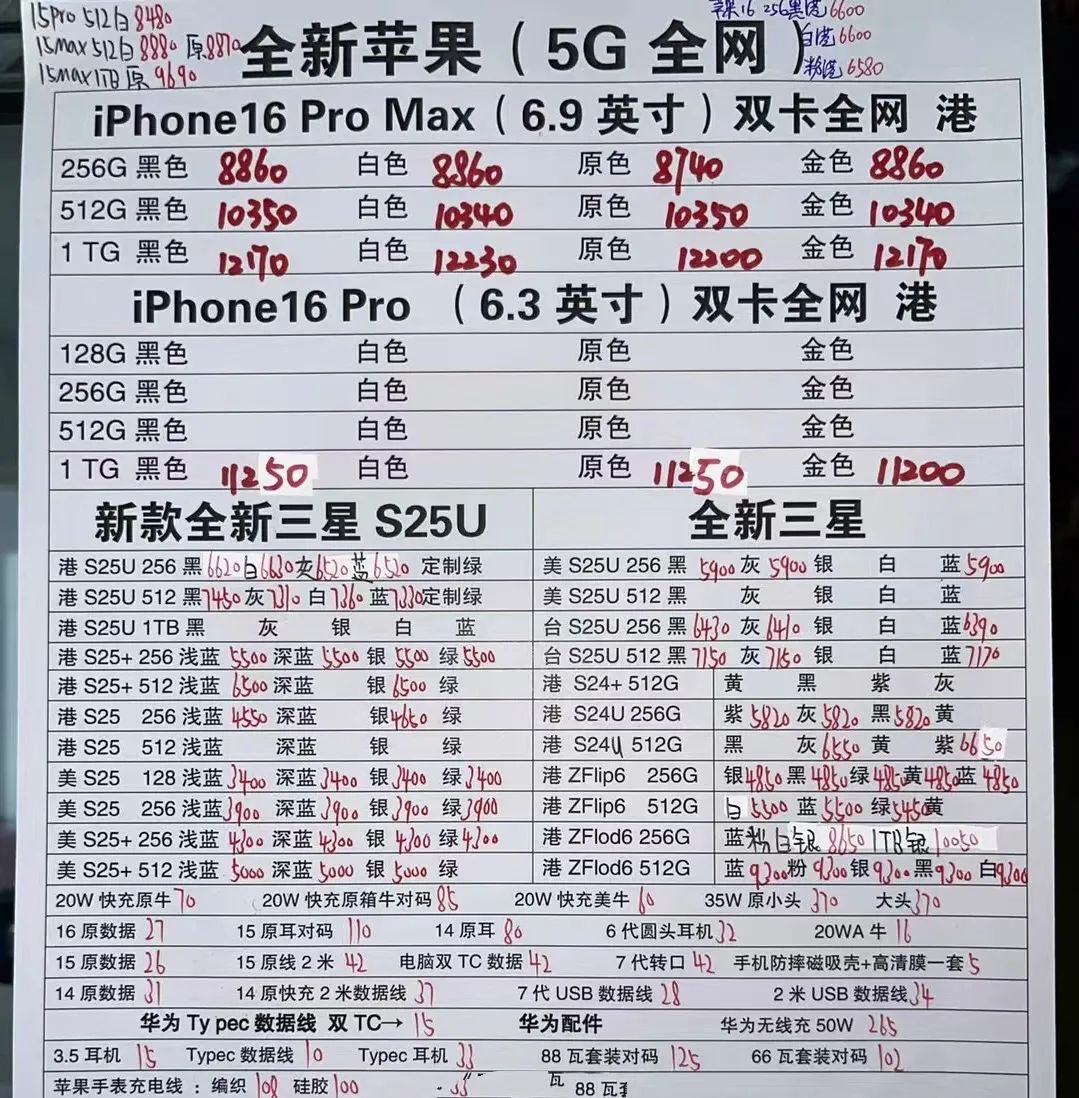 15Pro 512白 8480
15max 512白 8880 原8870
15max 1TB 原 9690
全新苹果（5G 全网）
苹果16 256黑港6600
白港6600
粉港6580
iPhone16 Pro Max（6.9 英寸）双卡全网 港
256G 黑色 8860 白色 8860 原色 8740 金色 8860
512G 黑色 10350 白色 10340 原色 10350 金色 10340
1 TG 黑色 12170 白色 12230 原色 12200 金色 12170
iPhone16 Pro （6.3 英寸）双卡全网 港
128G 黑色 白色 原色 金色
256G 黑色 白色 原色 金色
512G 黑色 白色 原色 金色
1 TG 黑色 11250 白色 原色 11250 金色 11200
新款全新三星 S25U
港 S25U 256 黑 6620 白 6630 灰 6520 蓝 6520 定制绿
港 S25U 512 黑 7450 灰 7310 白 7360 蓝 7330 定制绿
港 S25U 1TB 黑 灰 银 白 蓝
港 S25+ 256 浅蓝 5500 深蓝 5500 银 5500 绿 5500
港 S25+ 512 浅蓝 6500 深蓝 银 6500 绿
港 S25 256 浅蓝 4550 深蓝 银 4650 绿
港 S25 512 浅蓝 深蓝 银 绿
美 S25 128 浅蓝 3400 深蓝 3400 银 3400 绿 3400
美 S25 256 浅蓝 3900 深蓝 3900 银 3900 绿 3900
美 S25+ 256 浅蓝 4300 深蓝 4300 银 4300 绿 4300
美 S25+ 512 浅蓝 5000 深蓝 5000 银 5000 绿
全新三星
美 S25U 256 黑 5900 灰 5900 银 白 蓝 5900
美 S25U 512 黑 灰 银 白 蓝
台 S25U 256 黑 6430 灰 6410 银 白 蓝 6390
台 S25U 512 黑 7150 灰 7150 银 白 蓝 7170
港 S24+ 512G 黄 黑 紫 灰
港 S24U 256G 紫 5820 灰 5820 黑 5820 黄
港 S24U 512G 黑 灰 6550 黄 紫 6650
港 ZFlip6 256G 银 4850 黑 4850 绿 4850 黄 4850 蓝 4850
港 ZFlip6 512G 白 5500 蓝 5500 绿 5450 黄
港 ZFlod6 256G 蓝 粉 白 银 8650 1TB 银 10050
港 ZFlod6 512G 蓝 9300 粉 9300 银 9300 黑 9300 白 9300
20W 快充原牛 70 20W 快充原箱牛对码 85 20W 快充美牛 60 35W 原小头 370 大头 370
16 原数据 27 15 原耳对码 110 14 原耳 80 6 代圆头耳机 32 20WA 牛 16
15 原数据 26 15 原线 2 米 42 电脑双 TC 数据 42 7 代转口 42 手机防摔磁吸壳+高清膜一套 5
14 原数据 31 14 原快充 2 米数据线 37 7 代 USB 数据线 28 2 米 USB 数据线 34
华为 Ty pec 数据线 双 TC→ 15 华为配件 华为无线充 50W 265
3.5 耳机 15 Typec 数据线 10 Typec 耳机 33 88 瓦套装对码 125 66 瓦套装对码 102
苹果手表充电线 ：编织 108 硅胶 100 瓦 88 瓦